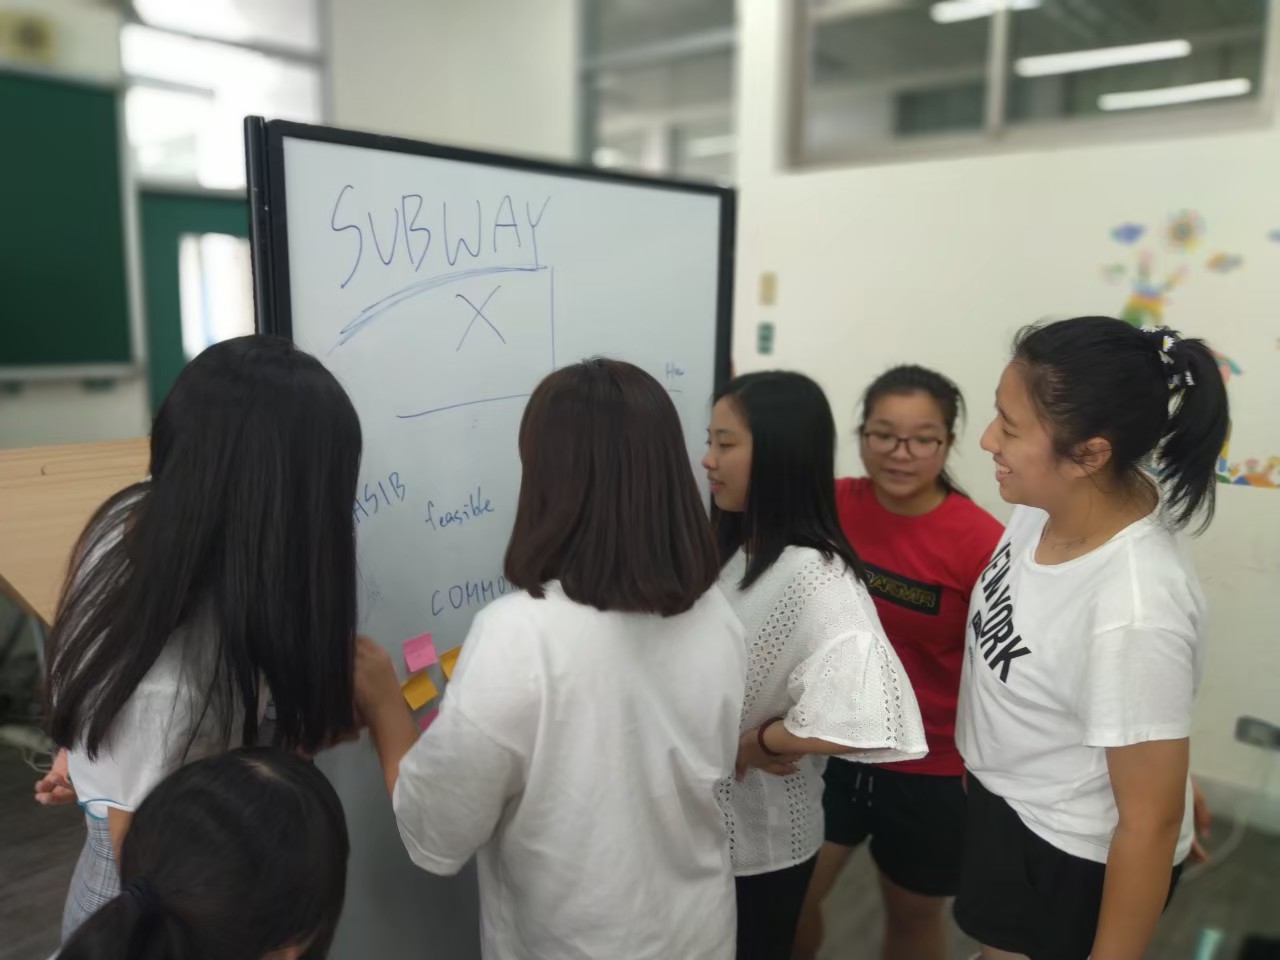 SUBWAY
X
ASIB
feasible
COMMO
NEW YORK